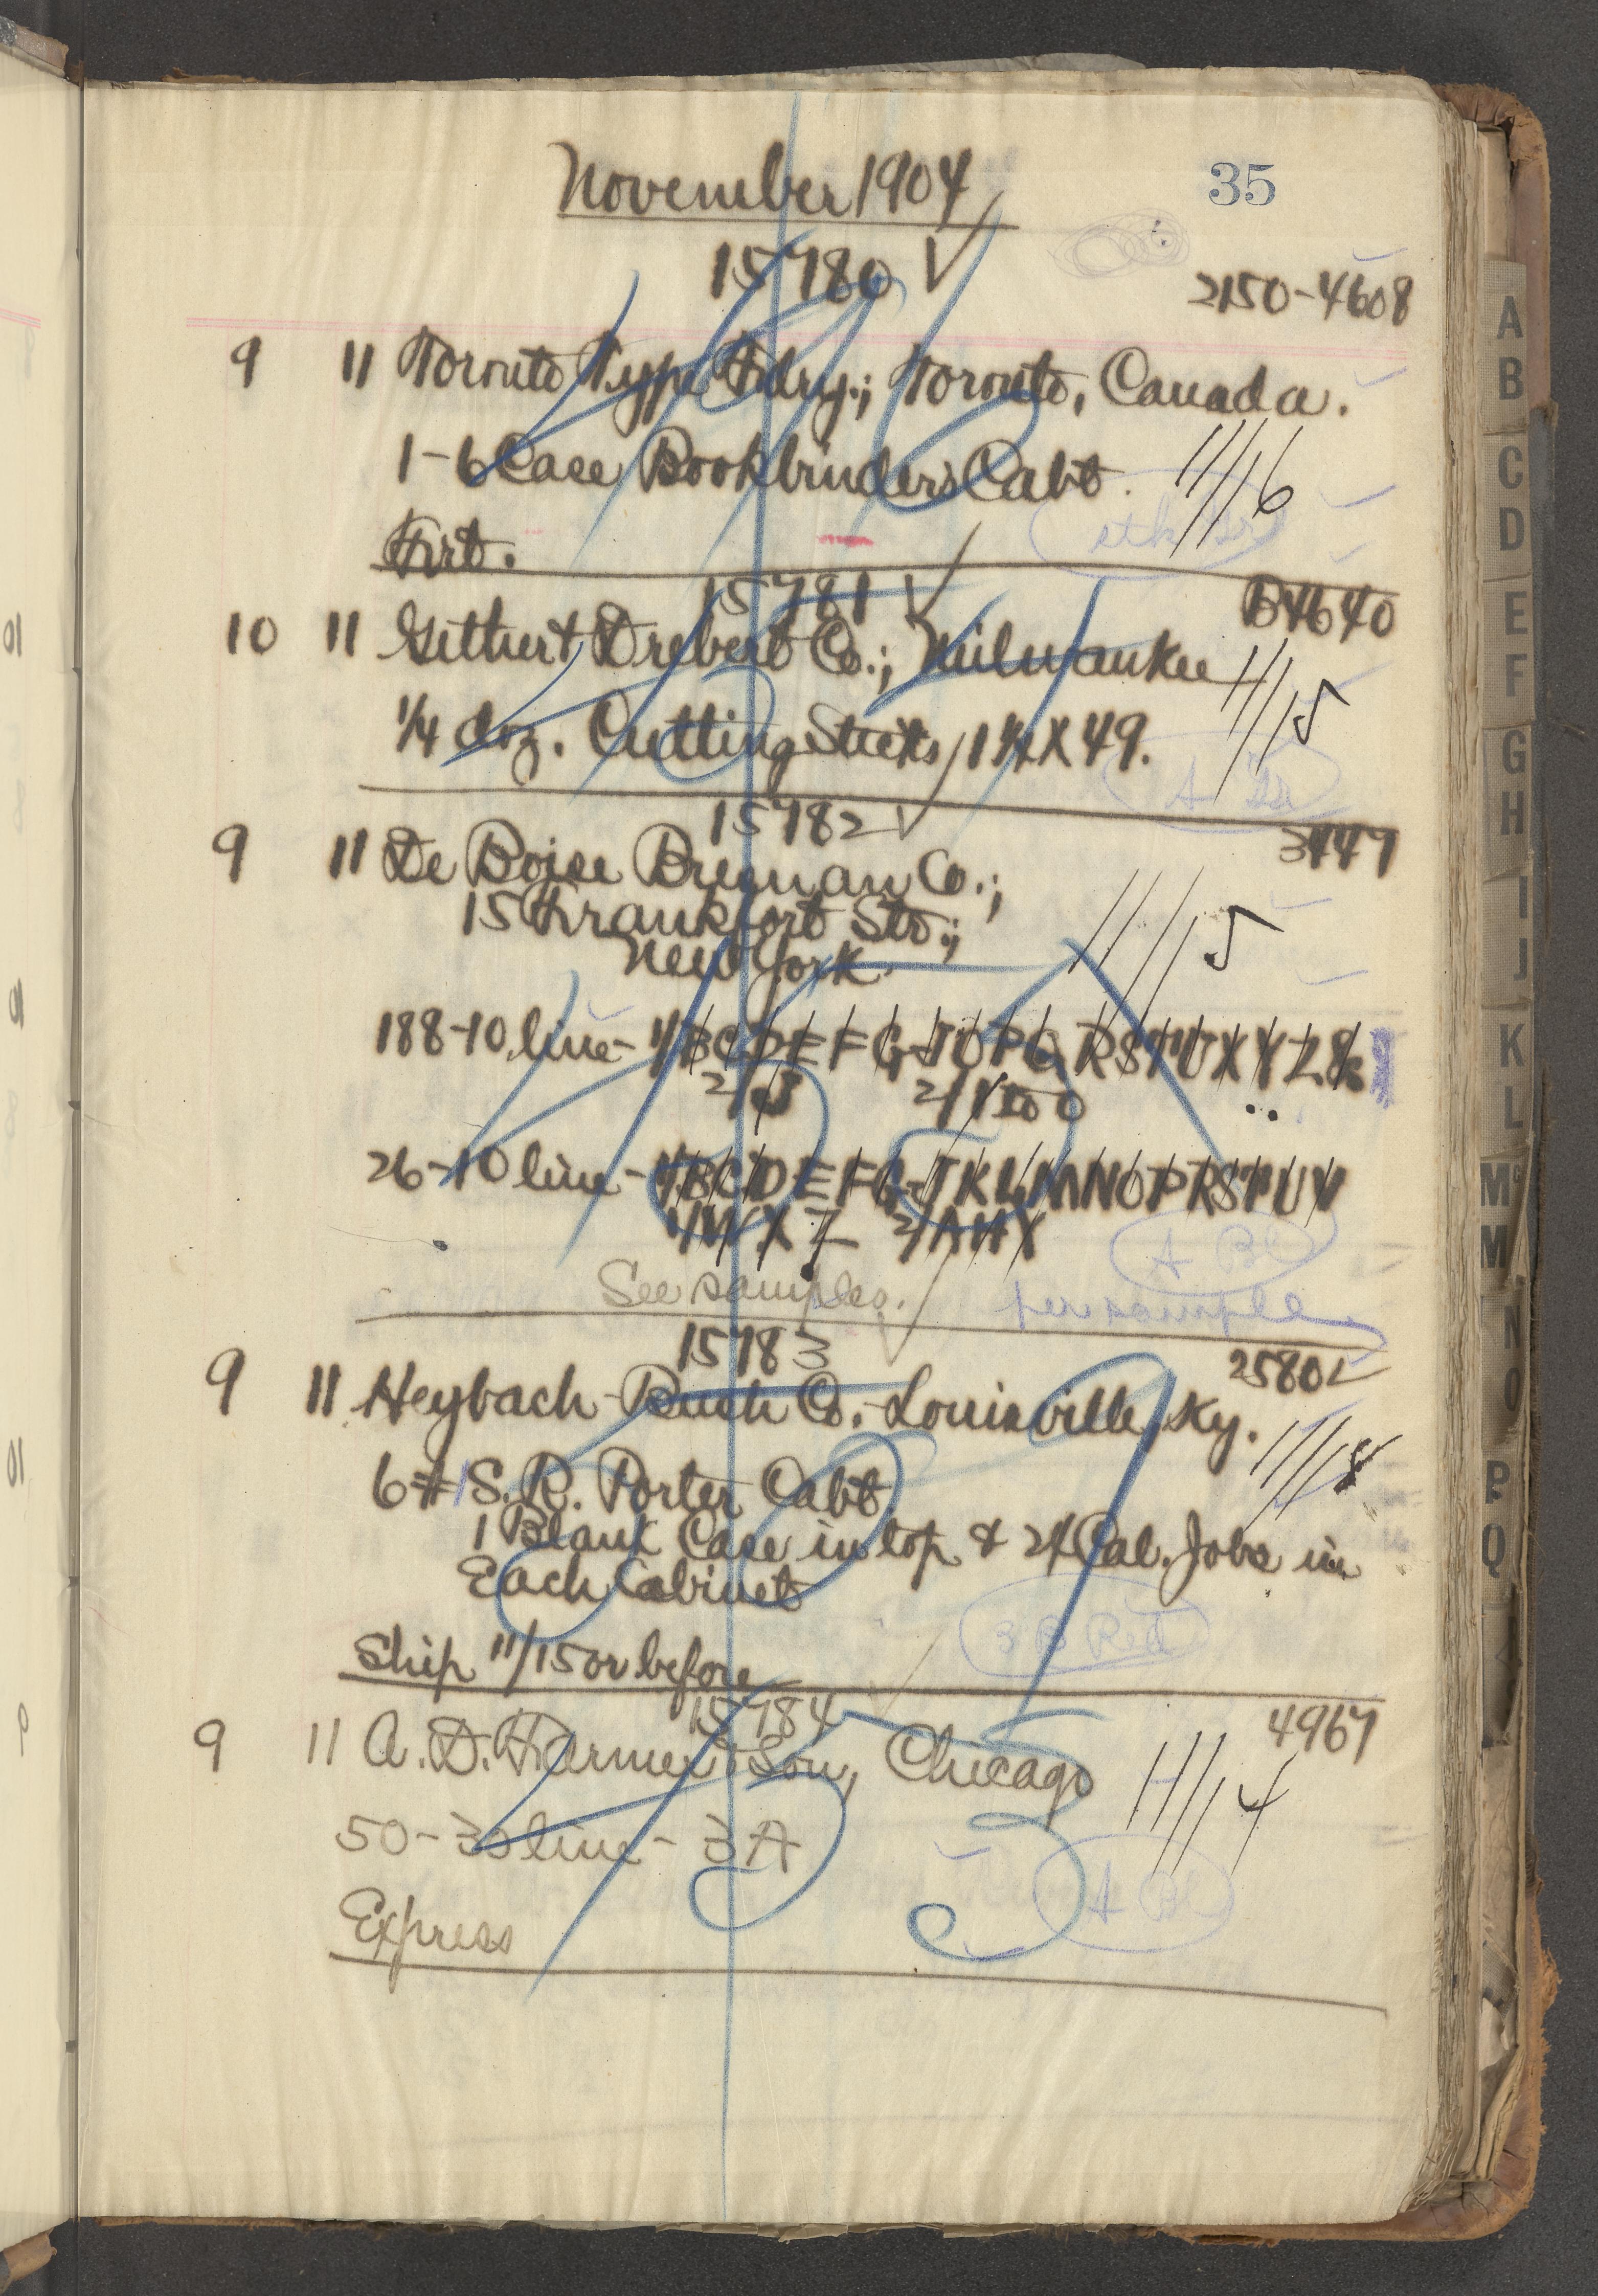 November 1904
35
15780 ✓
2150-4608
9 11 Toronto Type Fdry.; Toronto, Canada.
1-6 Case Bookbinder's Cabt. 11/16
Frt.
15781 ✓
B4640
10 11 Gethert Drebert Co.; Milwaukee 11/15
1/4 doz. Cutting Sticks, 1 1/4 X 49.
15782 ✓
3447
9 11 De Boise Bregman Co.;
15 Frankfort Str.;
New York 11/15
188-10 line- 1/B C D E F G J O P Q R S T U X Y Z &
26-10 line- 1/B C D E F G J K L M N O P R S T U V
1/W X Z 2/A H X
A Bl
See samples.
per sample
15783 ✓
2580
9 11 Heybach-Bush Co. Louisville, Ky.
11/18
6 # 1 S. R. Porter Cabt
1 Blank Case in top & 24 Cal. Jobs in
Each Cabinet
3 B Red
Ship 11/15 or before
15784
4967
9 11 A. D. Farmer & Son, Chicago 11/14
50-30 line- 3 A
A Bl
Express
A
B
C
D
E
F
G
H
I
J
K
L
Mc
M
N
O
P
Q